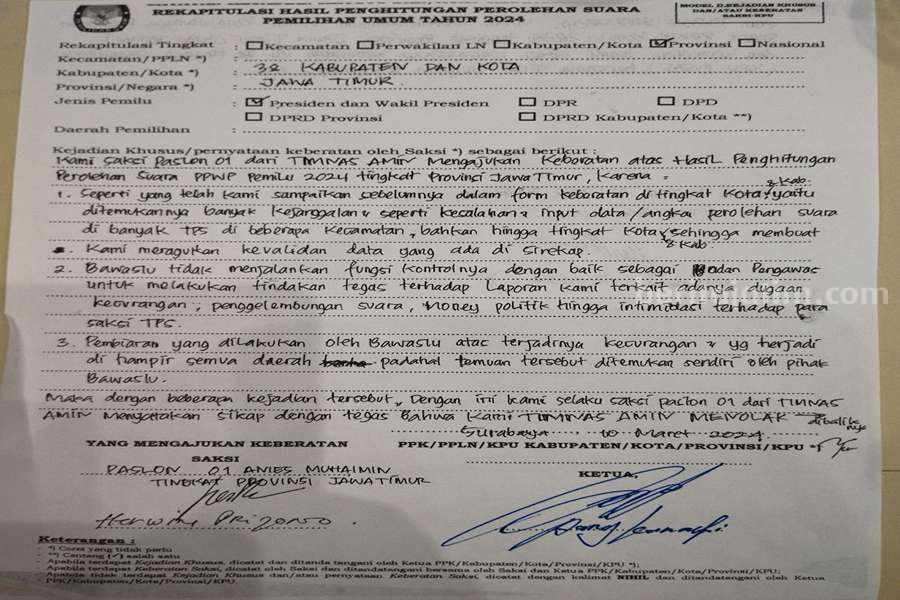 REKAPITULASI HASIL PENGHITUNGAN PEROLEHAN SUARA
PEMILIHAN UMUM TAHUN 2024
MODEL D.KEJADIAN KHUSUS
DAN/ATAU KEBERATAN
SAKSI-KPU
Rekapitulasi Tingkat : Kecamatan Perwakilan LN Kabupaten/Kota Provinsi Nasional
Kecamatan/PPLN *) :
Kabupaten/Kota *) : 38 KABUPATEN DAN KOTA
Provinsi/Negara *) : JAWA TIMUR
Jenis Pemilu : Presiden dan Wakil Presiden DPR DPD
DPRD Provinsi DPRD Kabupaten/Kota **)
Daerah Pemilihan :
Kejadian Khusus/pernyataan keberatan oleh Saksi *) sebagai berikut :
Kami saksi paslon 01 dari TIMNAS AMIN Mengajukan Keberatan atas Hasil Penghitungan
Perolehan Suara PPWP Pemilu 2024 tingkat Provinsi Jawa Timur, Karena :
1. Seperti yang telah kami sampaikan sebelumnya dalam form keberatan di tingkat Kota & Kab. yaitu
ditemukannya banyak kejanggalan2 seperti kesalahan2 input data/angka perolehan suara
di banyak TPS di beberapa Kecamatan, bahkan hingga tingkat Kota & Kab, sehingga membuat
Kami meragukan kevalidan data yang ada di sirekap.
2. Bawaslu tidak menjalankan fungsi kontrolnya dengan baik sebagai Badan Pengawas
untuk melakukan tindakan tegas terhadap Laporan kami terkait adanya dugaan
kecurangan, penggelembungan suara, Money politik hingga intimidasi terhadap para
saksi TPS.
3. Pembiaran yang dilakukan oleh Bawaslu atas terjadinya kecurangan2 yg terjadi
di hampir semua daerah padahal temuan tersebut ditemukan sendiri oleh pihak
Bawaslu.
Maka dengan beberapa kejadian tersebut, Dengan ini kami selaku saksi paslon 01 dari TIMNAS
AMIN Menyatakan sikap dengan tegas Bahwa Kami TIMNAS AMIN MENOLAK
Surabaya 10 Maret 2024
YANG MENGAJUKAN KEBERATAN
PPK/PPLN/KPU KABUPATEN/KOTA/PROVINSI/KPU *)
SAKSI
KETUA,
PASLON 01 ANIES MUHAIMIN
TINGKAT PROVINSI JAWA TIMUR
Keterangan :
- *) Coret yang tidak perlu
- **) Centang (✓) salah satu
- Apabila terdapat Kejadian Khusus, dicatat dan ditanda tangani oleh Ketua PPK/Kabupaten/Kota/Provinsi/KPU *);
- Apabila terdapat Keberatan Saksi, dicatat oleh Saksi dan ditandatangani bersama oleh Saksi dan Ketua PPK/Kabupaten/Kota/Provinsi/KPU;
- Apabila tidak terdapat Kejadian Khusus dan/atau pernyataan Keberatan Saksi, dicatat dengan kalimat NIHIL dan ditandatangani oleh Ketua
PPK/Kabupaten/Kota/Provinsi/KPU.